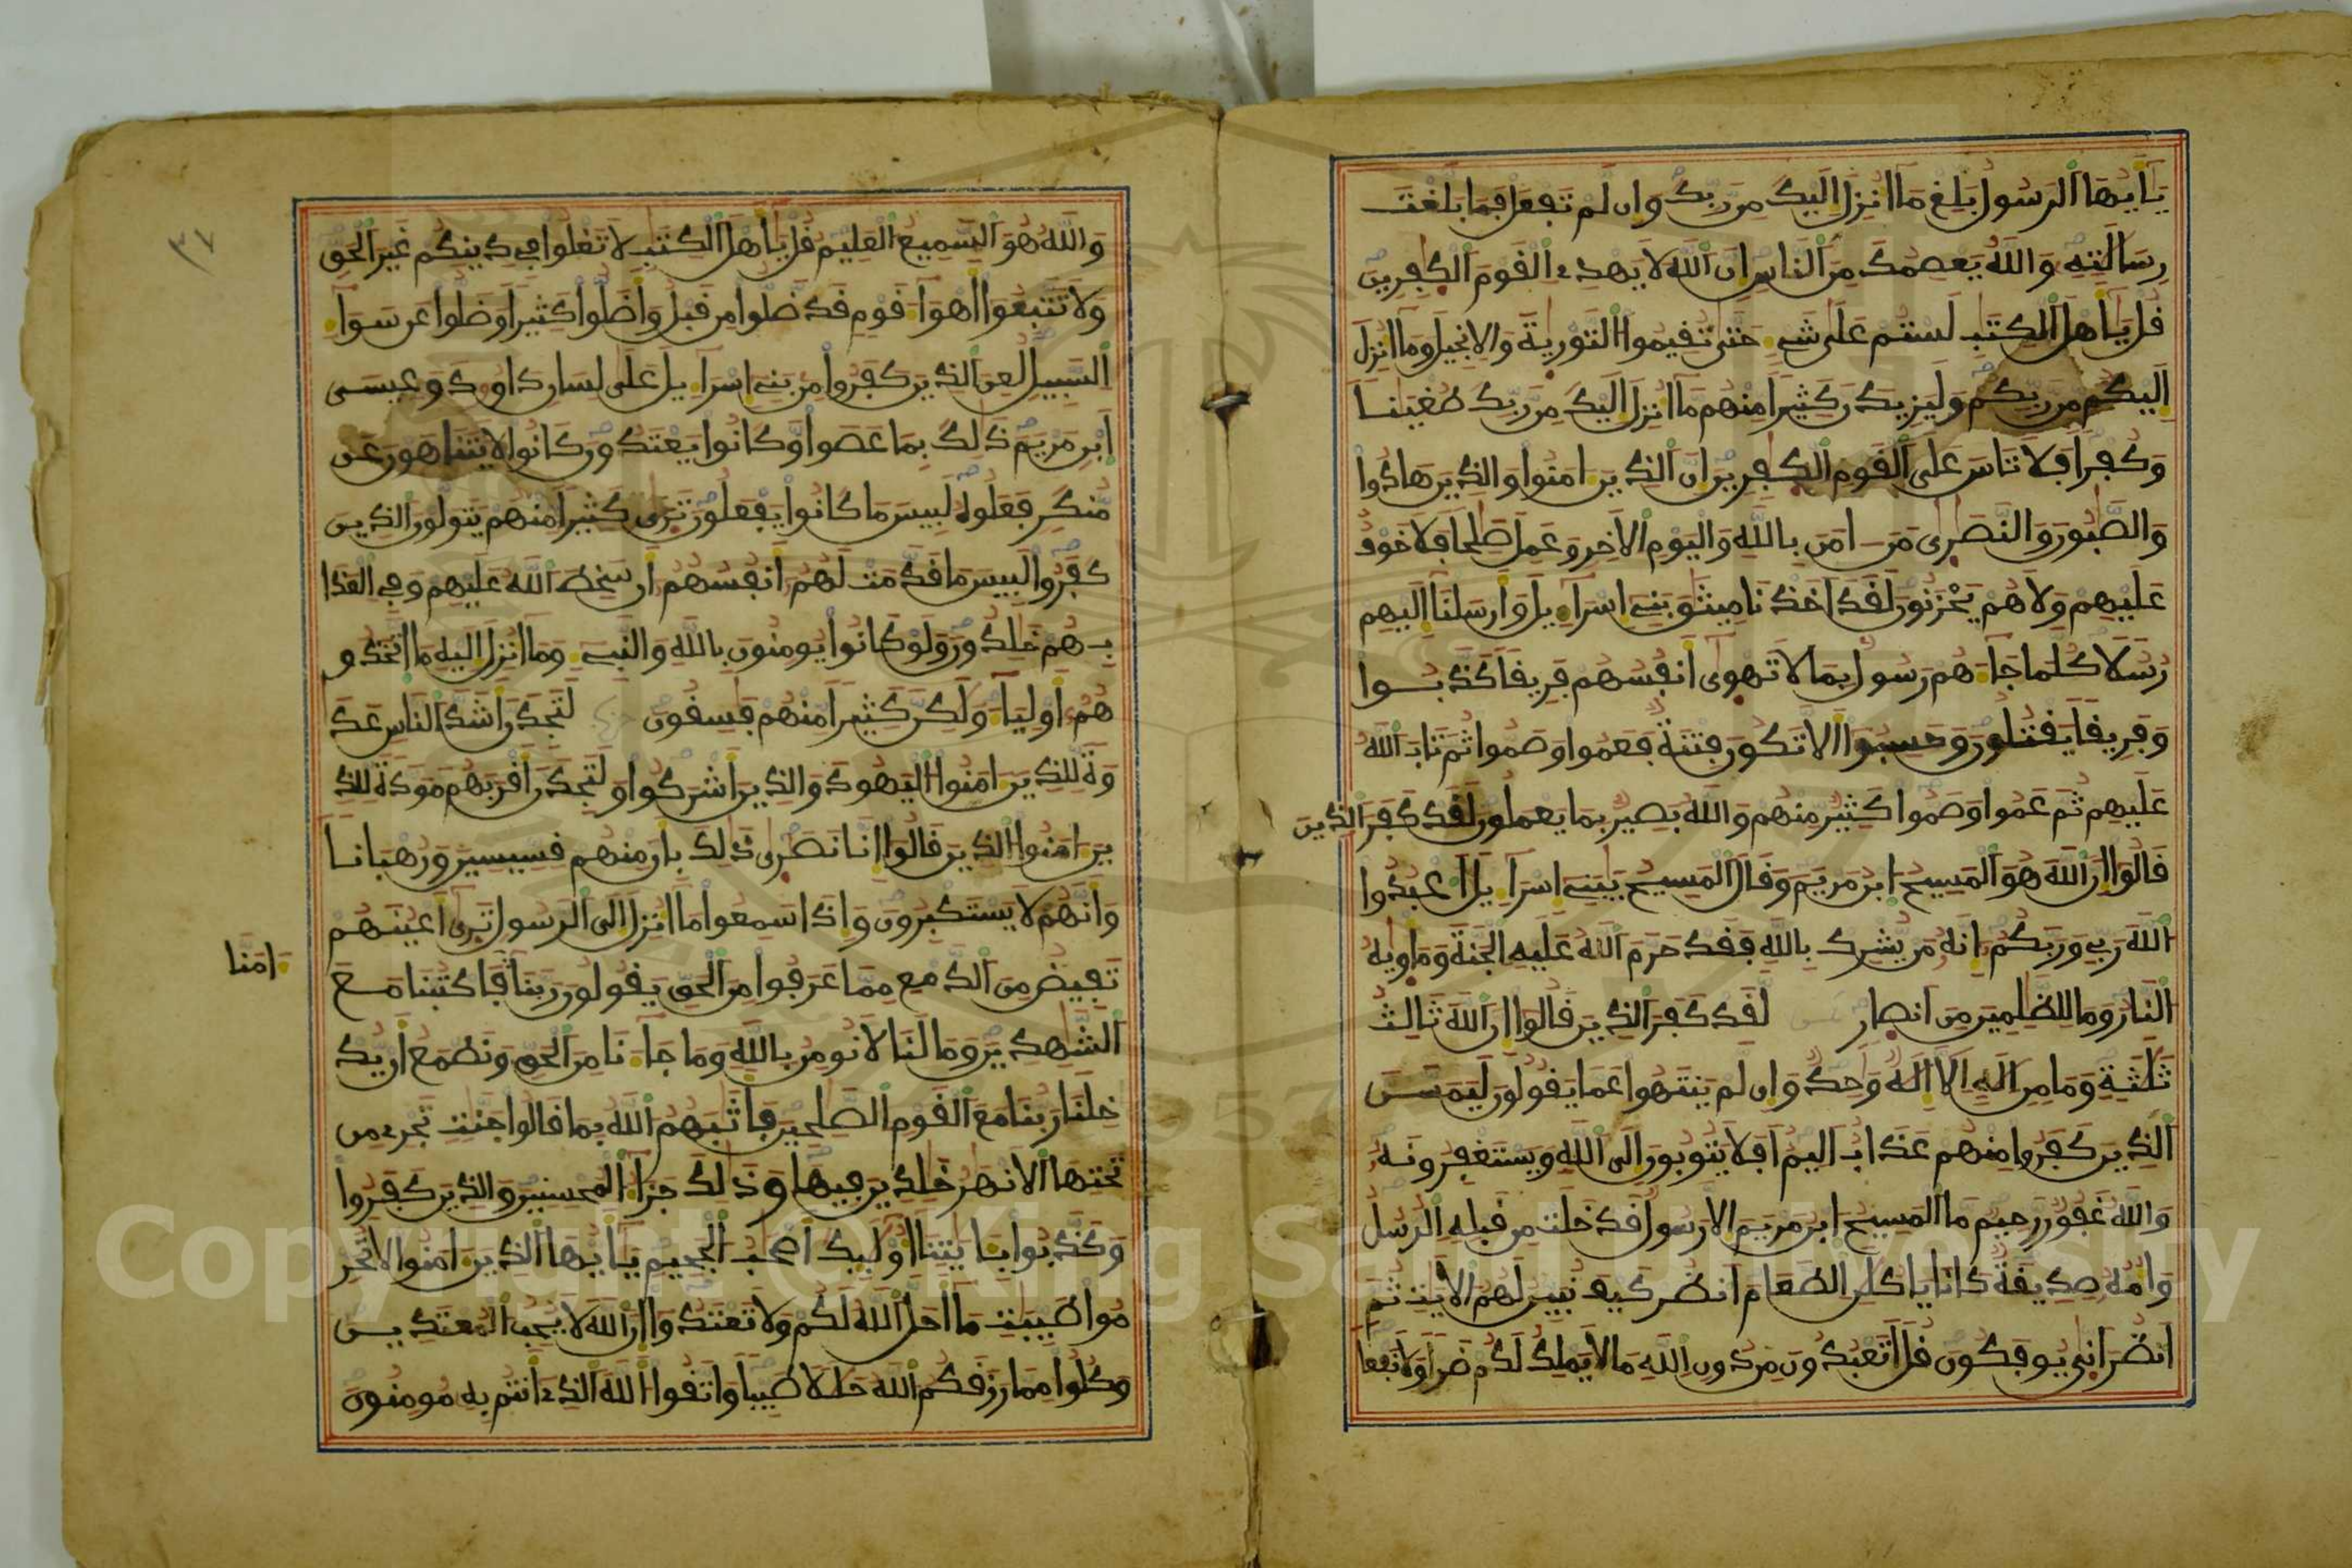 يَا أَيُّهَا الرَّسُولُ بَلِّغْ مَا أُنزِلَ إِلَيْكَ مِن رَّبِّكَ وَإِن لَّمْ تَفْعَلْ فَمَا بَلَّغْتَ
رِسَالَتِهِ وَاللَّهُ يَعْصِمُكَ مِنَ النَّاسِ إِنَّ اللَّهَ لَا يَهْدِي الْقَوْمَ الْكَفِرِينَ
قُلْ يَا أَهْلَ الْكِتَبِ لَسْتُمْ عَلَى شَيْءٍ حَتَّى تُقِيمُوا التَّوْرَيةَ وَالْإِنجِيلَ وَمَا أُنزِلَ
إِلَيْكُم مِّن رَّبِّكُمْ وَلَيَزِيدَنَّ كَثِيرًا مِّنْهُم مَّا أُنزِلَ إِلَيْكَ مِن رَّبِّكَ طُغْيَنًا
وَكُفْرًا فَلَا تَأْسَ عَلَى الْقَوْمِ الْكَفِرِينَ إِنَّ الَّذِينَ ءَامَنُوا وَالَّذِينَ هَادُوا
وَالصَّبُونَ وَالنَّصَرَى مَنَ امَنَ بِاللَّهِ وَالْيَوْمِ الْأَخِرِ وَعَمِلَ صَلِحًا فَلَا خَوْفٌ
عَلَيْهِمْ وَلَا هُمْ يَحْزَنُونَ لَقَدْ أَخَذْنَا مِيثَقَ بَنِي إِسْرَاءِيلَ وَأَرْسَلْنَا إِلَيْهِمْ
رُسُلًا كُلَّمَا جَاءَهُمْ رَسُولٌ بِمَا لَا تَهْوَى أَنفُسُهُمْ فَرِيقًا كَذَّبُوا
وَفَرِيقًا يَقْتُلُونَ وَحَسِبُوا أَلَّا تَكُونَ فِتْنَةٌ فَعَمُوا وَصَمُّوا ثُمَّ تَابَ اللَّهُ
عَلَيْهِمْ ثُمَّ عَمُوا وَصَمُّوا كَثِيرٌ مِّنْهُمْ وَاللَّهُ بَصِيرٌ بِمَا يَعْمَلُونَ لَقَدْ كَفَرَ الَّذِينَ
قَالُوا إِنَّ اللَّهَ هُوَ الْمَسِيحُ ابْنُ مَرْيَمَ وَقَالَ الْمَسِيحُ يَبَنِي إِسْرَاءِيلَ اعْبُدُوا
اللَّهَ رَبِّي وَرَبَّكُمْ إِنَّهُ مَن يُشْرِكْ بِاللَّهِ فَقَدْ حَرَّمَ اللَّهُ عَلَيْهِ الْجَنَّةَ وَمَأْوَيهُ
النَّارُ وَمَا لِلظَّلِمِينَ مِنْ أَنصَارٍ لَّقَدْ كَفَرَ الَّذِينَ قَالُوا إِنَّ اللَّهَ ثَالِثُ
ثَلَثَةٍ وَمَا مِنْ إِلَهٍ إِلَّا إِلَهٌ وَحِدٌ وَإِن لَّمْ يَنتَهُوا عَمَّا يَقُولُونَ لَيَمَسَّنَّ
الَّذِينَ كَفَرُوا مِنْهُمْ عَذَابٌ أَلِيمٌ أَفَلَا يَتُوبُونَ إِلَى اللَّهِ وَيَسْتَغْفِرُونَهُ
وَاللَّهُ غَفُورٌ رَّحِيمٌ مَّا الْمَسِيحُ ابْنُ مَرْيَمَ إِلَّا رَسُولٌ قَدْ خَلَتْ مِن قَبْلِهِ الرُّسُلُ
وَأُمُّهُ صِدِّيقَةٌ كَانَا يَاكُلَنِ الطَّعَامَ انظُرْ كَيْفَ نُبَيِّنُ لَهُمُ الْأَيَتِ ثُمَّ
انظُرْ أَنَّى يُوفَكُونَ قُلْ أَتَعْبُدُونَ مِن دُونِ اللَّهِ مَا لَا يَمْلِكُ لَكُمْ ضَرًّا وَلَا نَفْعًا
وَاللَّهُ هُوَ السَّمِيعُ الْعَلِيمُ قُلْ يَا أَهْلَ الْكِتَبِ لَا تَغْلُوا فِي دِينِكُمْ غَيْرَ الْحَقِّ
وَلَا تَتَّبِعُوا أَهْوَاءَ قَوْمٍ قَدْ ضَلُّوا مِن قَبْلُ وَأَضَلُّوا كَثِيرًا وَضَلُّوا عَن سَوَاءِ
السَّبِيلِ لُعِنَ الَّذِينَ كَفَرُوا مِن بَنِي إِسْرَاءِيلَ عَلَى لِسَانِ دَاوُدَ وَعِيسَى
ابْنِ مَرْيَمَ ذَلِكَ بِمَا عَصَوا وَّكَانُوا يَعْتَدُونَ كَانُوا لَا يَتَنَاهَوْنَ عَن
مُّنكَرٍ فَعَلُوهُ لَبِيسَ مَا كَانُوا يَفْعَلُونَ تَرَى كَثِيرًا مِّنْهُمْ يَتَوَلَّوْنَ الَّذِينَ
كَفَرُوا لَبِيسَ مَا قَدَّمَتْ لَهُمْ أَنفُسُهُمْ أَن سَخِطَ اللَّهُ عَلَيْهِمْ وَفِي الْعَذَا
بِ هُمْ خَلِدُونَ وَلَوْ كَانُوا يُومِنُونَ بِاللَّهِ وَالنَّبِيءِ وَمَا أُنزِلَ إِلَيْهِ مَا اتَّخَذُو
هُمْ أَوْلِيَاءَ وَلَكِنَّ كَثِيرًا مِّنْهُمْ فَسِقُونَ لَتَجِدَنَّ أَشَدَّ النَّاسِ عَدَ
وَةً لِّلَّذِينَ ءَامَنُوا الْيَهُودَ وَالَّذِينَ أَشْرَكُوا وَلَتَجِدَنَّ أَقْرَبَهُم مَّوَدَّةً لِّلَّذِ
ينَ ءَامَنُوا الَّذِينَ قَالُوا إِنَّا نَصَرَى ذَلِكَ بِأَنَّ مِنْهُمْ قِسِّيسِينَ وَرُهْبَانًا
وَأَنَّهُمْ لَا يَسْتَكْبِرُونَ وَإِذَا سَمِعُوا مَا أُنزِلَ إِلَى الرَّسُولِ تَرَى أَعْيُنَهُمْ
تَفِيضُ مِنَ الدَّمْعِ مِمَّا عَرَفُوا مِنَ الْحَقِّ يَقُولُونَ رَبَّنَا فَاكْتُبْنَا مَعَ
ءَامَنَّا
الشَّهِدِينَ وَمَا لَنَا لَا نُومِنُ بِاللَّهِ وَمَا جَاءَنَا مِنَ الْحَقِّ وَنَطْمَعُ أَن يُّدْ
خِلَنَا رَبُّنَا مَعَ الْقَوْمِ الصَّلِحِينَ فَأَثَبَهُمُ اللَّهُ بِمَا قَالُوا جَنَّتٍ تَجْرِي مِن
تَحْتِهَا الْأَنْهَرُ خَلِدِينَ فِيهَا وَذَلِكَ جَزَاءُ الْمُحْسِنِينَ وَالَّذِينَ كَفَرُوا
وَكَذَّبُوا بِئَايَتِنَا أُوْلَئِكَ أَصْحَبُ الْجَحِيمِ يَا أَيُّهَا الَّذِينَ ءَامَنُوا لَا تُحَرِّ
مُوا طَيِّبَتِ مَا أَحَلَّ اللَّهُ لَكُمْ وَلَا تَعْتَدُوا إِنَّ اللَّهَ لَا يُحِبُّ الْمُعْتَدِينَ
وَكُلُوا مِمَّا رَزَقَكُمُ اللَّهُ حَلَلًا طَيِّبًا وَاتَّقُوا اللَّهَ الَّذِي أَنتُم بِهِ مُومِنُونَ
Copyright © King Saud University